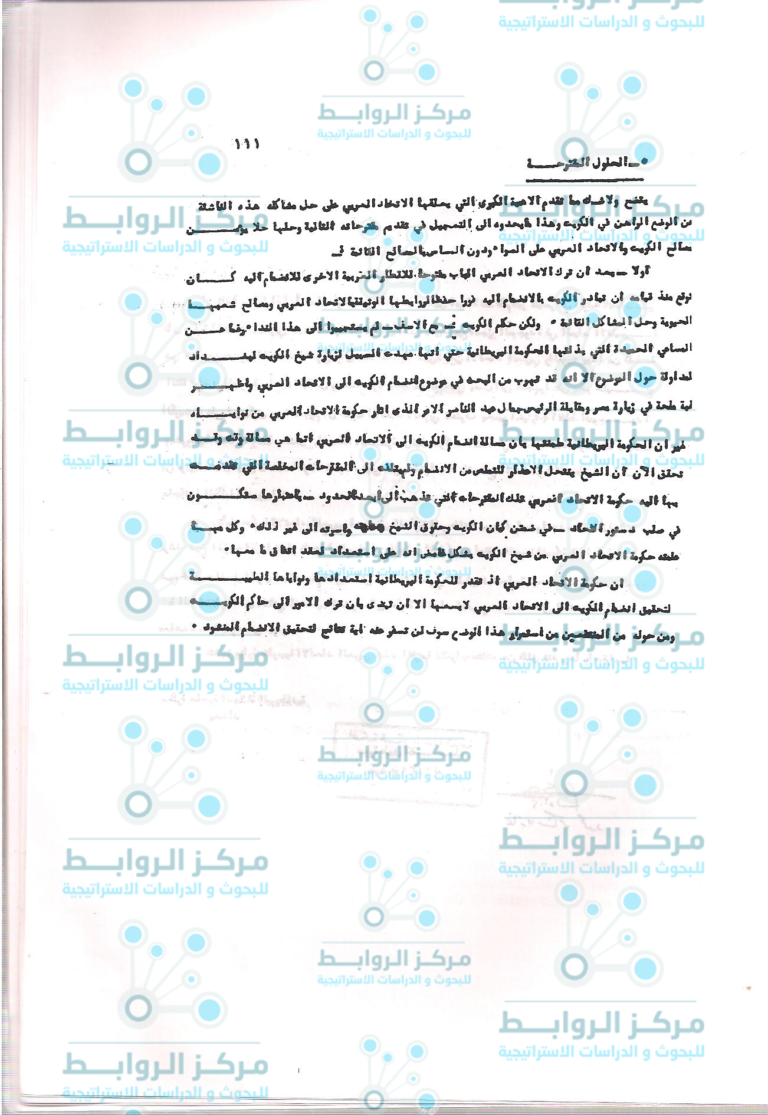 ١١١
٥ــ الحلول المقترحــــة
يتضح ولاشك مما تقدم الاهمية الكبرى التي يعلقها الاتحاد العربي على حل مشاكله هذه الناشئة
من الوضع الراهن في الكويت وهذا مايحدوه الى التعجيل في تقديم مقترحاته التالية وحلها حلا يؤمـــــن
مصالح الكويت والاتحاد العربي على السواء ودون المساس بالمصالح القائمة :ــ
أولا ــ بعد ان ترك الاتحاد العربي الباب مفتوحا للاقطار العربية الاخرى للانضمام اليه كـــــان
توقع منذ قيامه ان تبادر الكويت بالانضمام اليه فورا حفظا لروابطها الوثيقة بالاتحاد العربي ومصالح شعبهـــا
الحيوية وحل المشاكل القائمة ٠ ولكن حكام الكويت مع الاسف ــ لم يستجيبوا الى هذا النداء رغما عـــن
المساعي الحميدة التي بذلتها الحكومة البريطانية حتى انها مهدت السبيل لزيارة شيخ الكويت لبغـــــداد
لمداولة حول الموضوع الا انه قد تهرب من البحث في موضوع انضمام الكويت الى الاتحاد العربي واظهـــــر
نية ملحة في زيارة مصر ومقابلة الرئيس جمال عبد الناصر الامر الذى اثار حكومة الاتحاد العربي من نوايـــاه
غير ان الحكومة البريطانية طمنتها بأن مسألة انضمام الكويت الى الاتحاد العربي انما هي مسألة وقت وقـــد
تحقق الآن أن الشيخ ينتحل الاعذار للتملص من الانضمام ولم يلتفت الى المقترحات المخلصة التي تقدمـــت
بها اليه حكومة الاتحاد العربي تلك المقترحات التي تذهب الى ابعد الحدود ــ باعتبارها ستكـــــون
في صلب دستور الاتحاد ــ في ضمان كيان الكويت وحقوق الشيخ واسرته الى غير ذلك ٠ وكل مـــا
علمته حكومة الاتحاد العربي من شيخ الكويت بشكل غامض انه على استعداد لعقد اتفاق ما معها ٠
ان حكومة الاتحاد العربي اذ تقدر للحكومة البريطانية استعدادها ونواياها الطيبـــــة
لتحقيق انضمام الكويت الى الاتحاد العربي لايسعها الا ان تبدى بان ترك الامر الى حاكم الكويـــت
ومن حوله من المنتفعين من استمرار هذا الوضع سوف لن تسفر عنه اية نتائج لتحقيق الانضمام المنشود ٠
مركز الروابط
للبحوث و الدراسات الاستراتيجية